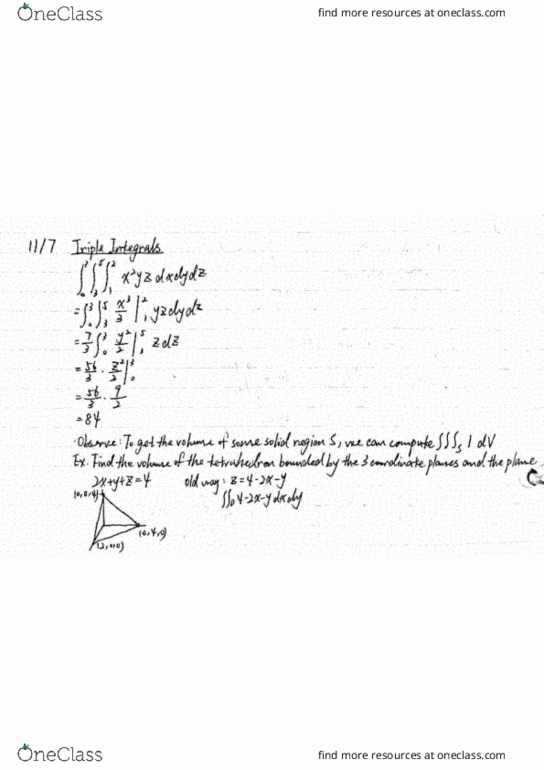 OneClass
find more resources at oneclass.com
11/7 Triple Integrals
∫₀³∫₃⁵∫₁² x²yz dxdydz
= ∫₀³∫₃⁵ x³/3 |₁² yzdydz
= 7/3 ∫₀³ y²/2 |₃⁵ zdz
= 56/3 · z²/2 |₀³
= 56/3 · 9/2
= 84
·Observe: To get the volume of some solid region S, we can compute ∫∫∫_S 1 dV
Ex. Find the volume of the tetrahedron bounded by the 3 coordinate planes and the plane
2x+y+z=4 old way: z=4-2x-y
∬_D 4-2x-y dxdy
(0,0,4)
(0,4,0)
(2,0,0)
OneClass
find more resources at oneclass.com